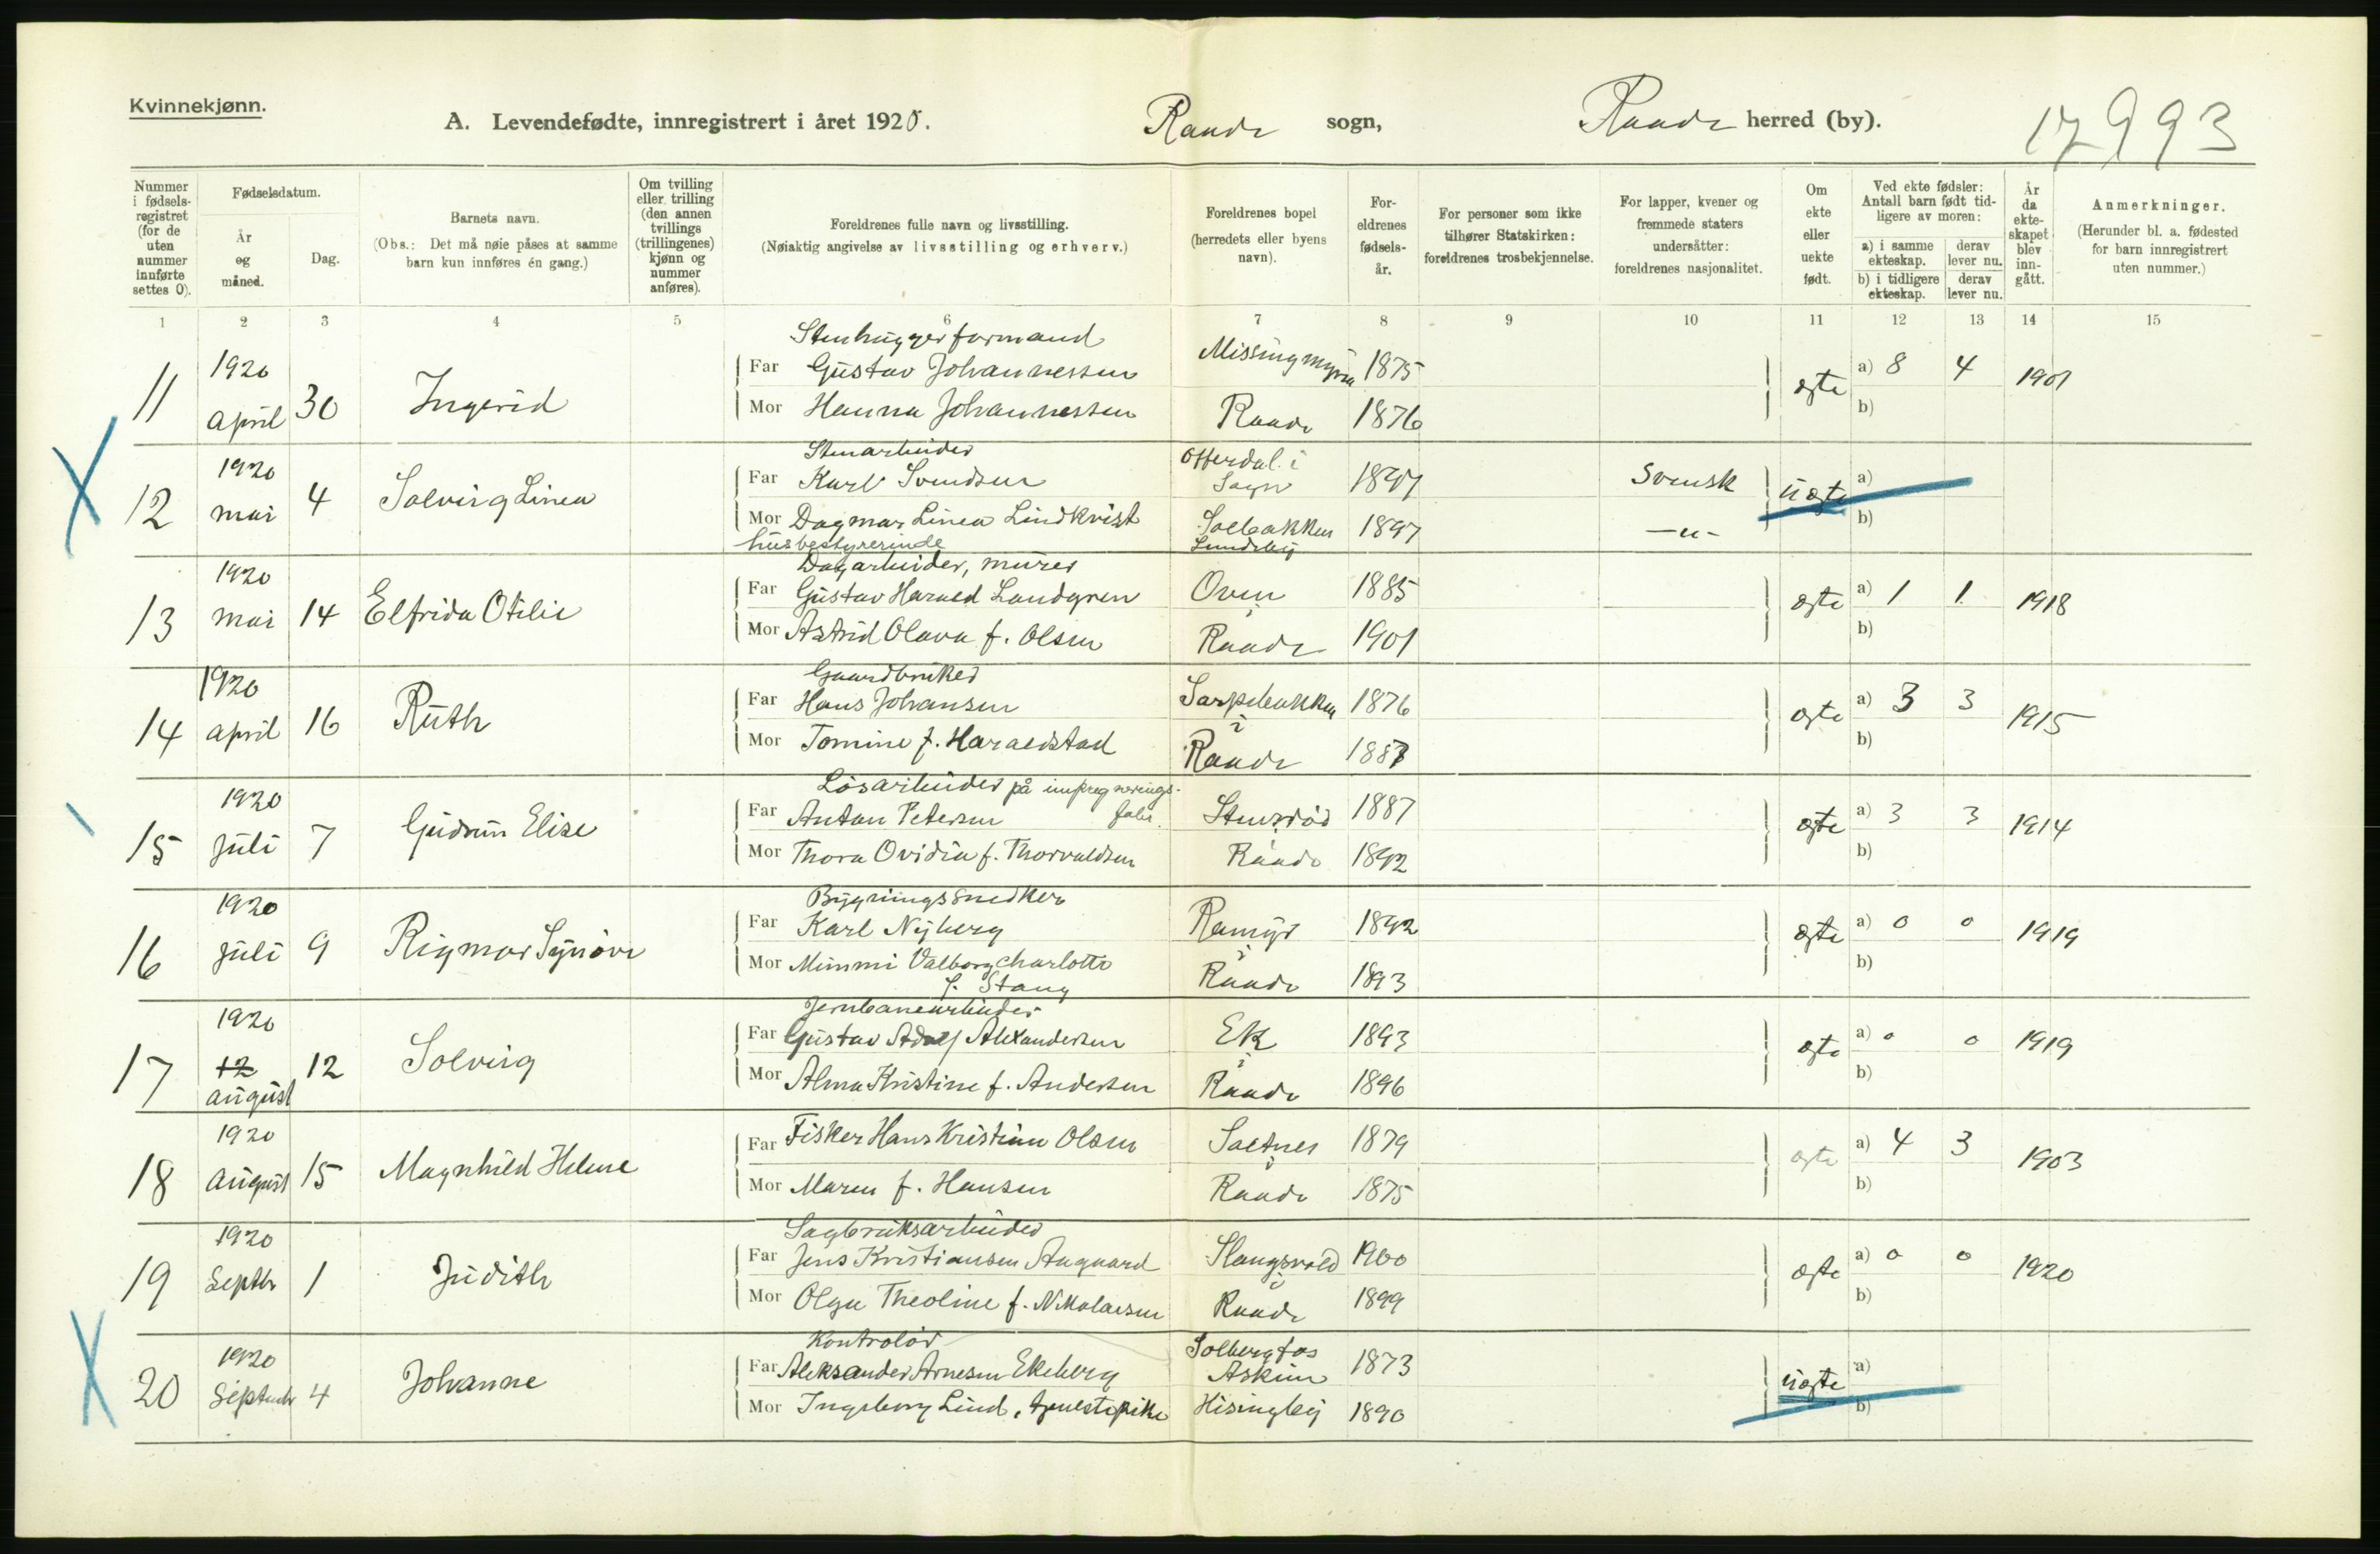 Kvinnekjønn.
A. Levendefødte, innregistrert i året 1920. Raade sogn, Raade herred (by). 17993
Nummer i fødsels-registret (for de uten nummer innførte settes 0).
Fødselsdatum.
År og måned.
Dag.
Barnets navn.
(Obs.: Det må nøie påses at samme barn kun innføres én gang.)
Om tvilling eller trilling (den annen tvillings (trillingenes) kjønn og nummer anføres).
Foreldrenes fulle navn og livsstilling.
(Nøiaktig angivelse av livsstilling og erhverv.)
Foreldrenes bopel (herredets eller byens navn).
For-eldrenes fødsels-år.
For personer som ikke tilhører Statskirken: foreldrenes trosbekjennelse.
For lapper, kvener og fremmede staters undersåtter: foreldrenes nasjonalitet.
Om ekte eller uekte født.
Ved ekte fødsler: Antall barn født tid-ligere av moren:
a) i samme ekteskap. derav lever nu.
b) i tidligere ekteskap. derav lever nu.
År da ekte-skapet blev inn-gått.
Anmerkninger.
(Herunder bl. a. fødested for barn innregistrert uten nummer.)
1 2 3 4 5 6 7 8 9 10 11 12 13 14 15
Stenhuggerformand
11 1920 april 30 Ingerid
Far Gustav Johannessen Missingmyra 1875 ægte a) 8 4 1901
Mor Hanna Johannessen Raade 1876 b)
Stenarbeider
12 1920 mai 4 Solveig Linea
Far Karl Svendsen Offerdal i Sogn 1897 Svensk uægte a)
Mor Dagmar Linea Lindkvist Solbakken Lundeby 1897 —"— b)
husbestyrerinde
Dagarbeider, murer
13 1920 mai 14 Elfrida Otilie
Far Gustav Harald Landgren Oven i 1885 ægte a) 1 1 1918
Mor Astrid Olava f. Olsen Raade 1901 b)
Gaardbruker
14 1920 april 16 Ruth
Far Hans Johansen Sarpebakken i 1876 ægte a) 3 3 1915
Mor Tomine f. Haraldstad Raade b)
Løsarbeider på impregnerings-
fabr.
15 1920 juli 7 Gudrun Elise
Far Anton Petersen Stensrød i 1887 ægte a) 3 3 1914
Mor Thora Ovidia f. Thorvaldsen Raade 1892 b)
Bygningssnedker
16 1920 juli 9 Rigmor Synøve
Far Karl Nyberg i 1892 ægte a) 0 0 1919
Mor Mimmi Valborg Charlotte f. Stang Raade 1893 b)
Jernbanearbeider
17 1920 12 august 12 Solveig
Far Gustav Adolf Alexandersen Ek i 1893 ægte a) 0 0 1919
Mor Alma Kristine f. Andersen Raade 1896 b)
18 1920 august 15 Magnhild Helene
Far Fisker Hans Kristian Olsen Saltnes i 1879 ægte a) 4 3 1903
Mor Maren f. Hansen Raade 1875 b)
Sagbruksarbeider
19 1920 Septbr 1 Judith
Far Jens Kristiansen Augaard Slangsvold i 1900 ægte a) 0 0 1920
Mor Olga Theoline f. Nikolaisen Raade 1899 b)
Kontrolør
20 1920 Septembr 4 Johanne
Far Aleksander Arnesen Ekeberg Solbergfos Askim 1873 uægte a)
Mor Ingeborg Lind, tjenestepike Hisingbej 1890 b)